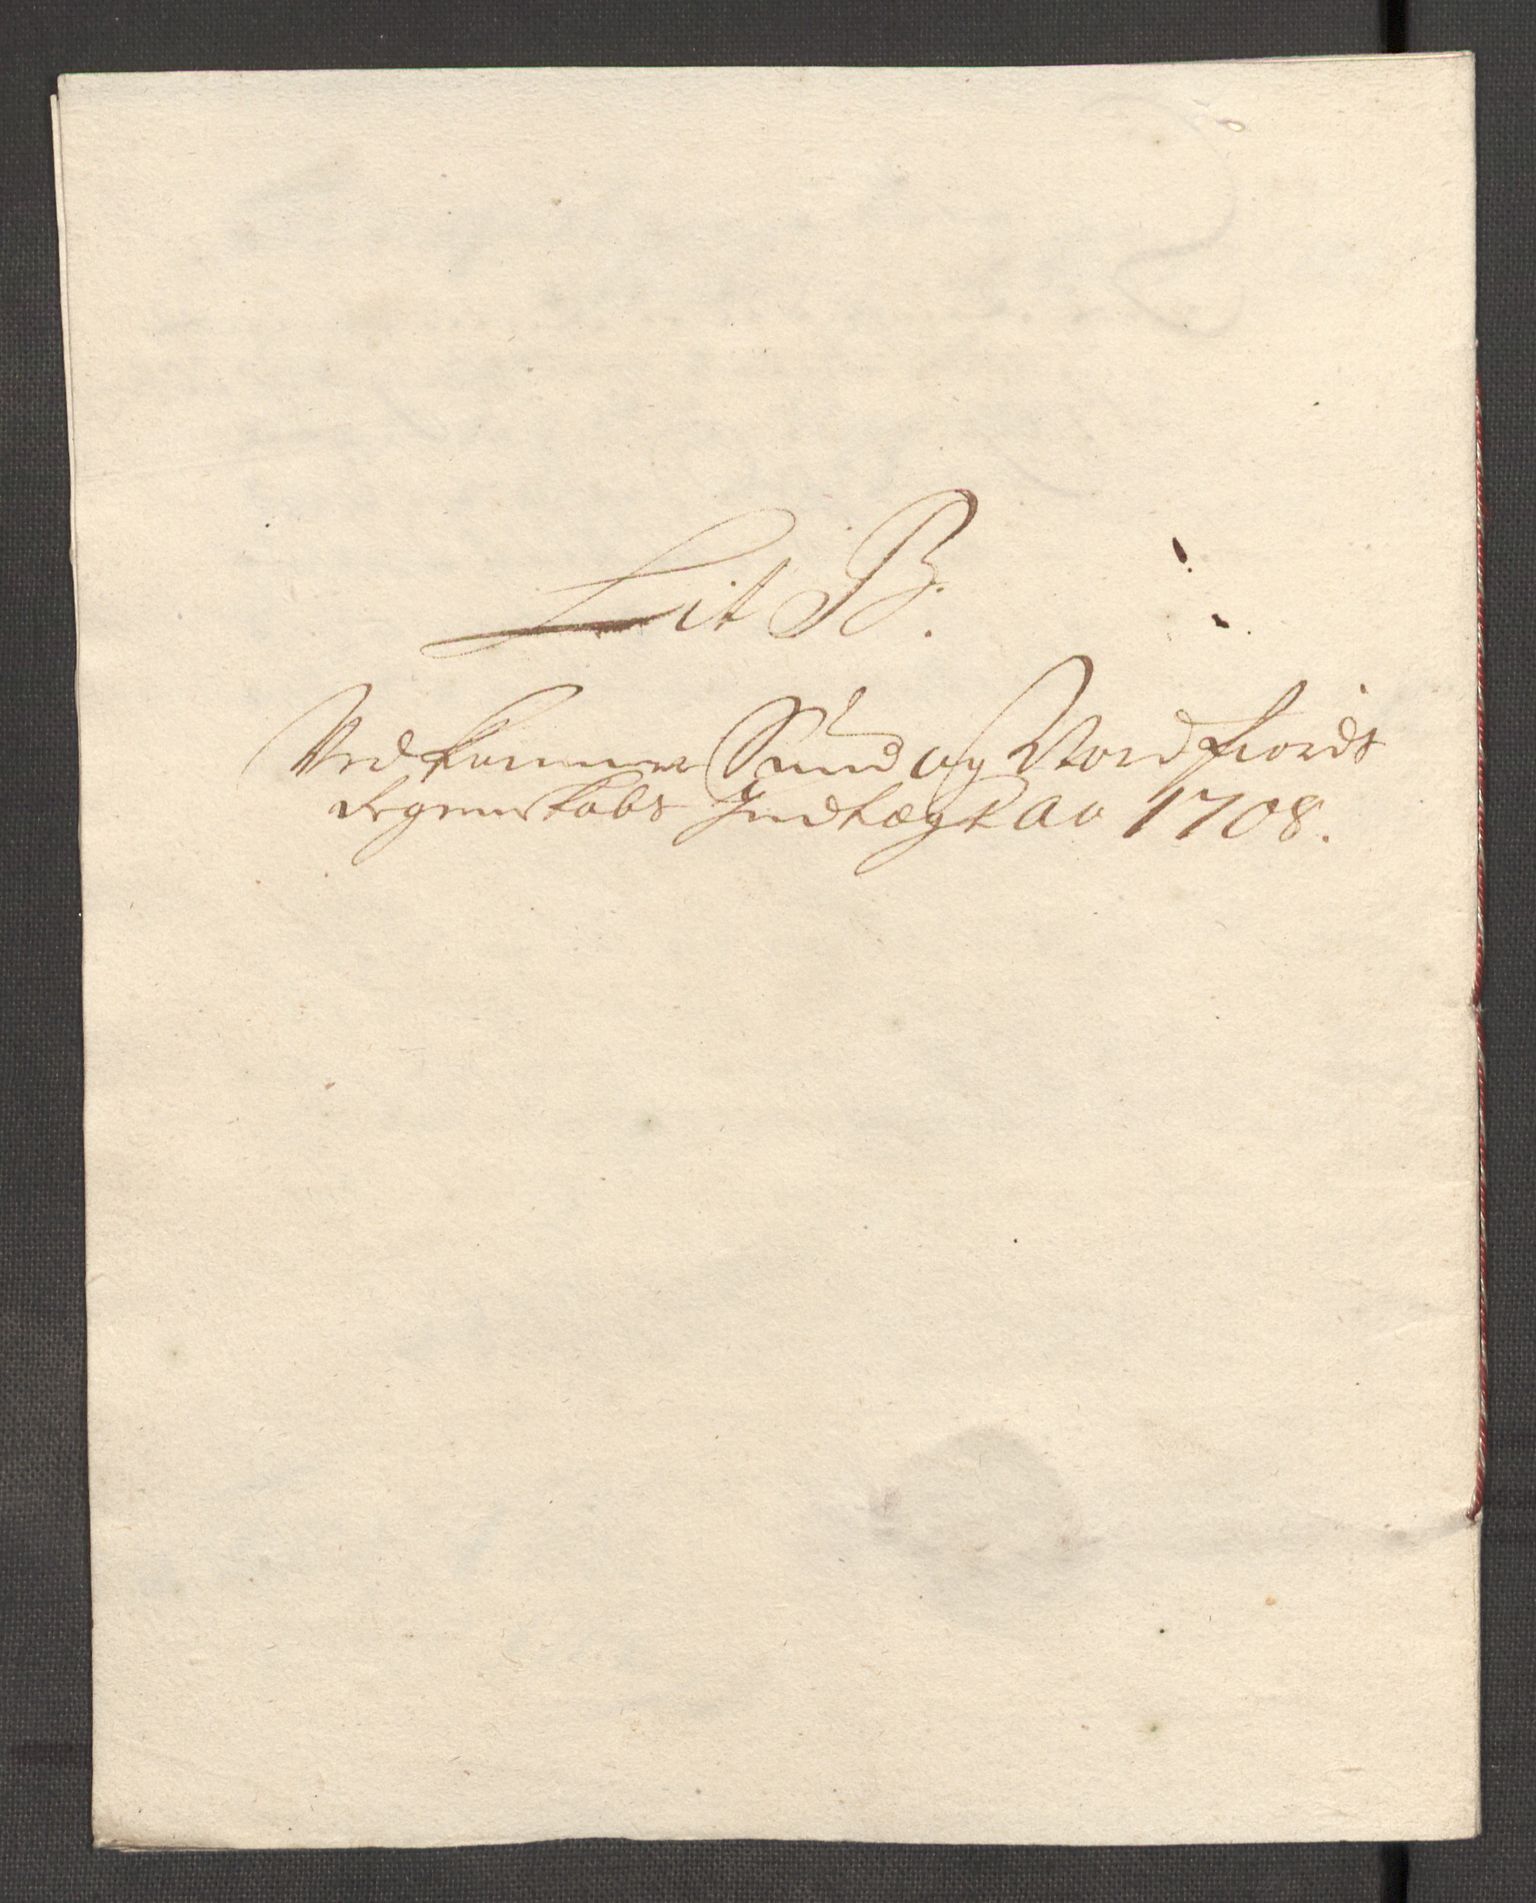 Lit B.
Vedkommer Sund og Nordfiords
Regenskabs Indtægt Ao 1708.